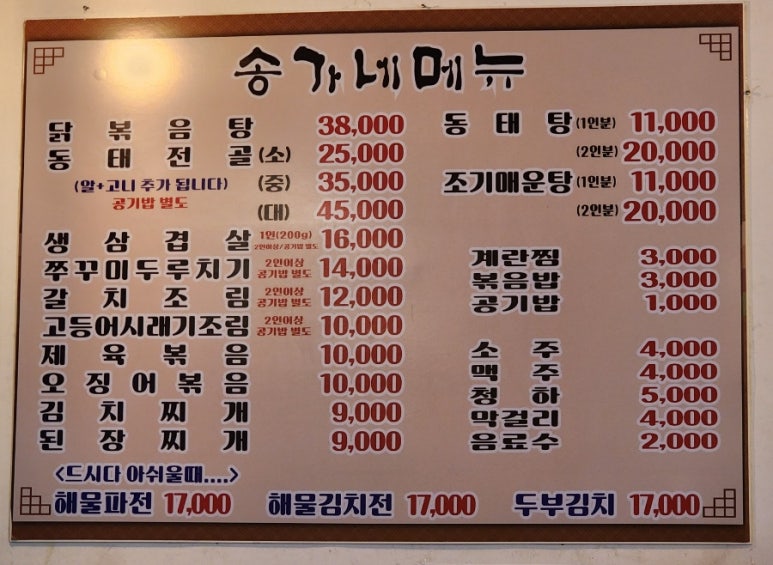 송가네메뉴
닭볶음탕 38,000
동태전골 (소) 25,000
(알+고니 추가 됩니다) (중) 35,000
공기밥 별도
(대) 45,000
생삼겹살 1인(200g) 2인이상/공기밥 별도 16,000
쭈꾸미두루치기 2인이상 공기밥 별도 14,000
갈치조림 2인이상 공기밥 별도 12,000
고등어시래기조림 2인이상 공기밥 별도 10,000
제육볶음 10,000
오징어볶음 10,000
김치찌개 9,000
된장찌개 9,000
동태탕 (1인분) 11,000
(2인분) 20,000
조기매운탕 (1인분) 11,000
(2인분) 20,000
계란찜 3,000
볶음밥 3,000
공기밥 1,000
소주 4,000
맥주 4,000
청하 5,000
막걸리 4,000
음료수 2,000
<드시다 아쉬울때....>
해물파전 17,000 해물김치전 17,000 두부김치 17,000